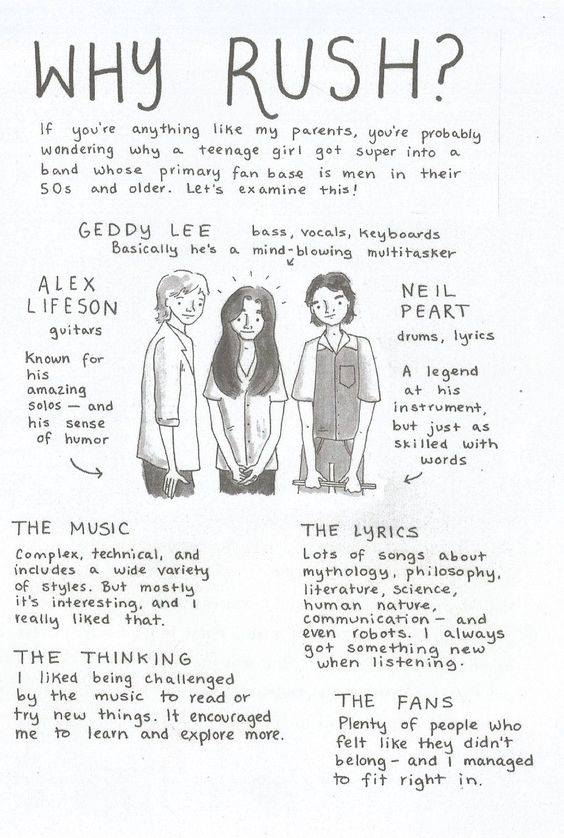 WHY RUSH?
If you're anything like my parents, you're probably
wondering why a teenage girl got super into a
band whose primary fan base is men in their
50s and older. Let's examine this!
GEDDY LEE bass, vocals, keyboards
Basically he's a mind-blowing multitasker
ALEX
LIFESON
guitars
Known for
his
amazing
solos — and
his sense
of humor
NEIL
PEART
drums, lyrics
A legend
at his
instrument,
but just as
skilled with
words
THE MUSIC
Complex, technical, and
includes a wide variety
of styles. But mostly
it's interesting, and I
really liked that.
THE THINKING
I liked being challenged
by the music to read or
try new things. It encouraged
me to learn and explore more.
THE LYRICS
Lots of songs about
mythology, philosophy,
literature, science,
human nature,
communication — and
even robots. I always
got something new
when listening.
THE FANS
Plenty of people who
felt like they didn't
belong — and I managed
to fit right in.